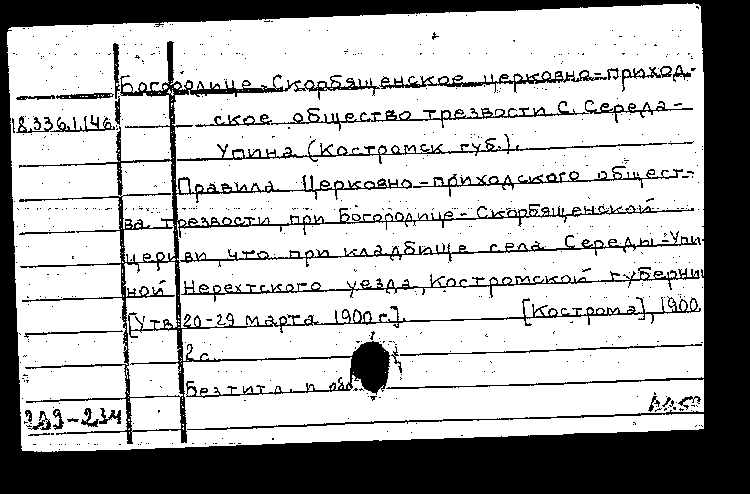 Богородице-Скорбященское церковно-приход-
18.336.1.146. ское общество трезвости С. Середа-
Упина (Костромск. губ.).
Правила Церковно-приходского общест-
ва трезвости при Богородице-Скорбященской
церкви, что при кладбище села Середы-Упи-
ной Нерехтского уезда, Костромской губернии
[Утв. 20-29 марта 1900 г.]. [Кострома], 1900.
2 с.
Без тит. л. и обл.